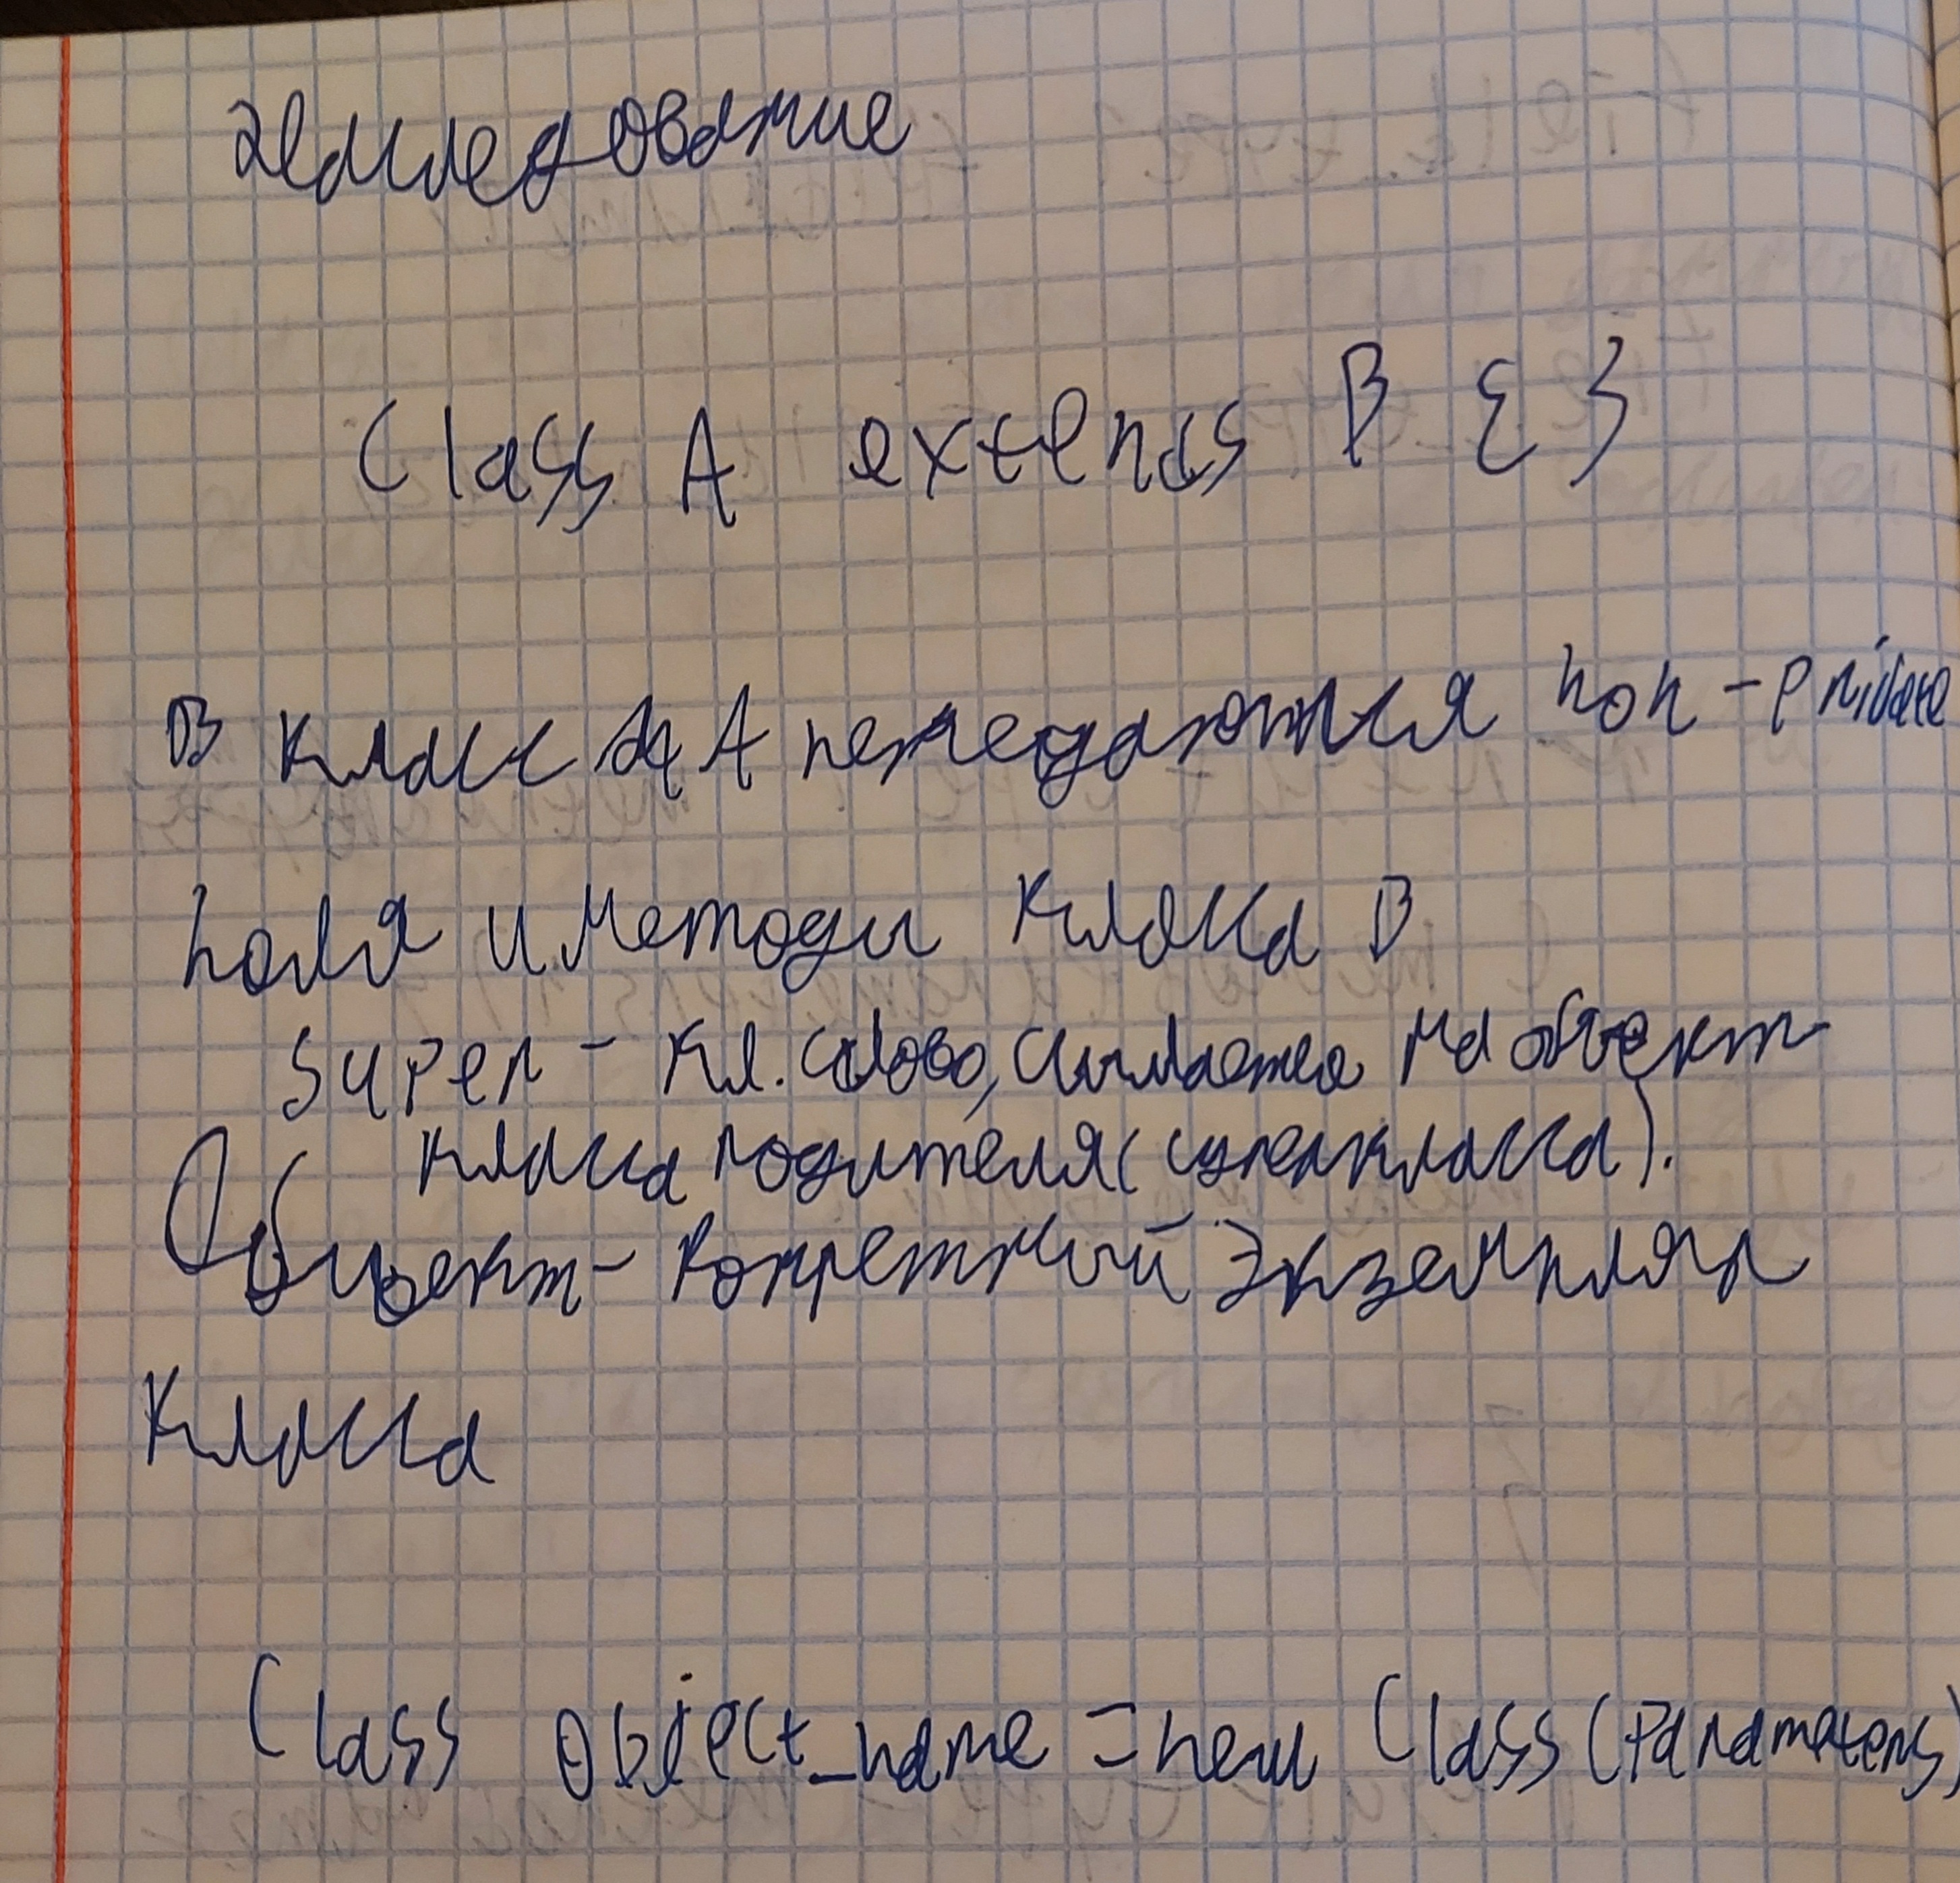 Наследование
Class A extends B { }
В класс A передаются non-private
поля и методы класса B
super - кл. слово, ссылается на объект
класса родителя (суперкласса).
Объект - конкретный экземпляр
класса
Class object_name = new Class (Parameters)